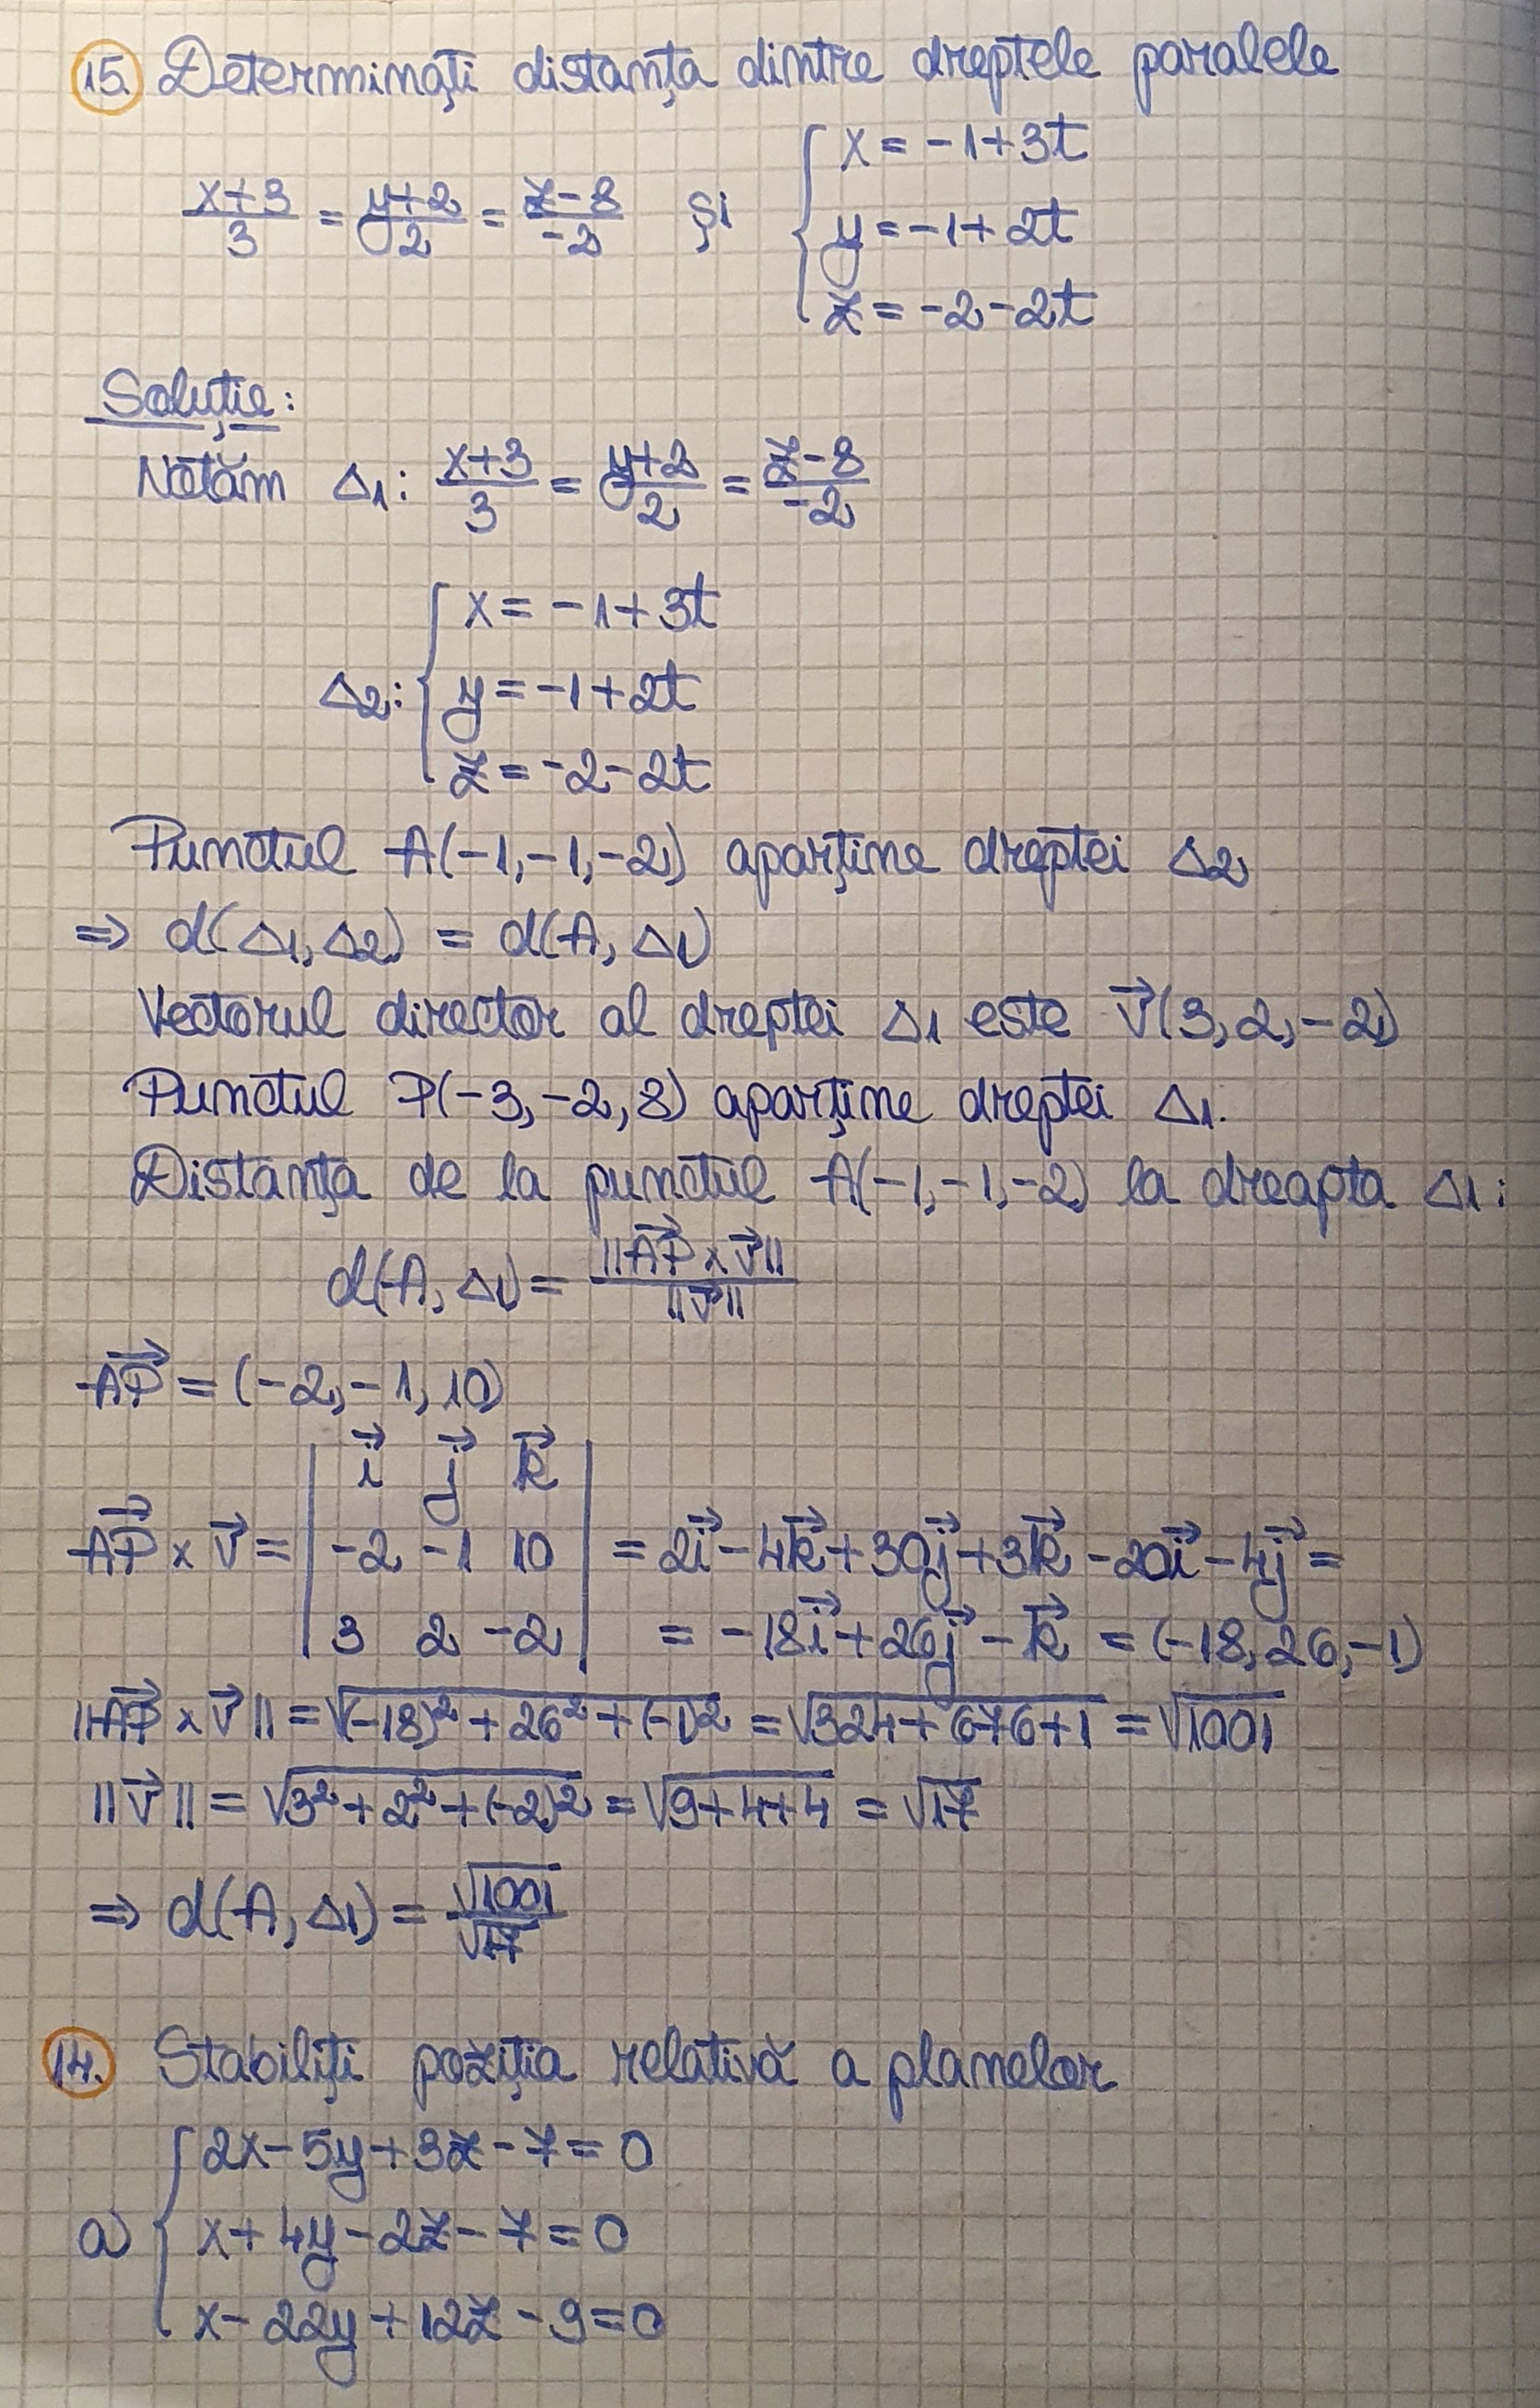 15. Determinați distanța dintre dreptele paralele
x+3/3 = y+2/2 = z-8/-2 și { x = -1+3t
y = -1+2t
z = -2-2t
Soluție:
Notăm Δ1: x+3/3 = y+2/2 = z-8/-2
Δ2: { x = -1+3t
y = -1+2t
z = -2-2t
Punctul A(-1,-1,-2) aparține dreptei Δ2
⇒ d(Δ1,Δ2) = d(A,Δ1)
Vectorul director al dreptei Δ1 este v⃗(3,2,-2)
Punctul P(-3,-2,8) aparține dreptei Δ1.
Distanța de la punctul A(-1,-1,-2) la dreapta Δ1:
d(A,Δ1) = ||AP⃗ x v⃗||/||v⃗||
AP⃗ = (-2,-1,10)
AP⃗ x v⃗ = | i⃗ j⃗ k⃗ |
| -2 -1 10 | = 2i⃗-4k⃗+30j⃗+3k⃗-20i⃗-4j⃗ =
| 3 2 -2 | = -18i⃗+26j⃗-k⃗ = (-18,26,-1)
||AP⃗ x v⃗|| = √(-18)²+26²+(-1)² = √324+676+1 = √1001
||v⃗|| = √3²+2²+(-2)² = √9+4+4 = √17
⇒ d(A,Δ1) = √1001/√17
14. Stabiliți poziția relativă a planelor
a) { 2x-5y+3z-7=0
x+4y-2z-7=0
x-22y+12z-9=0